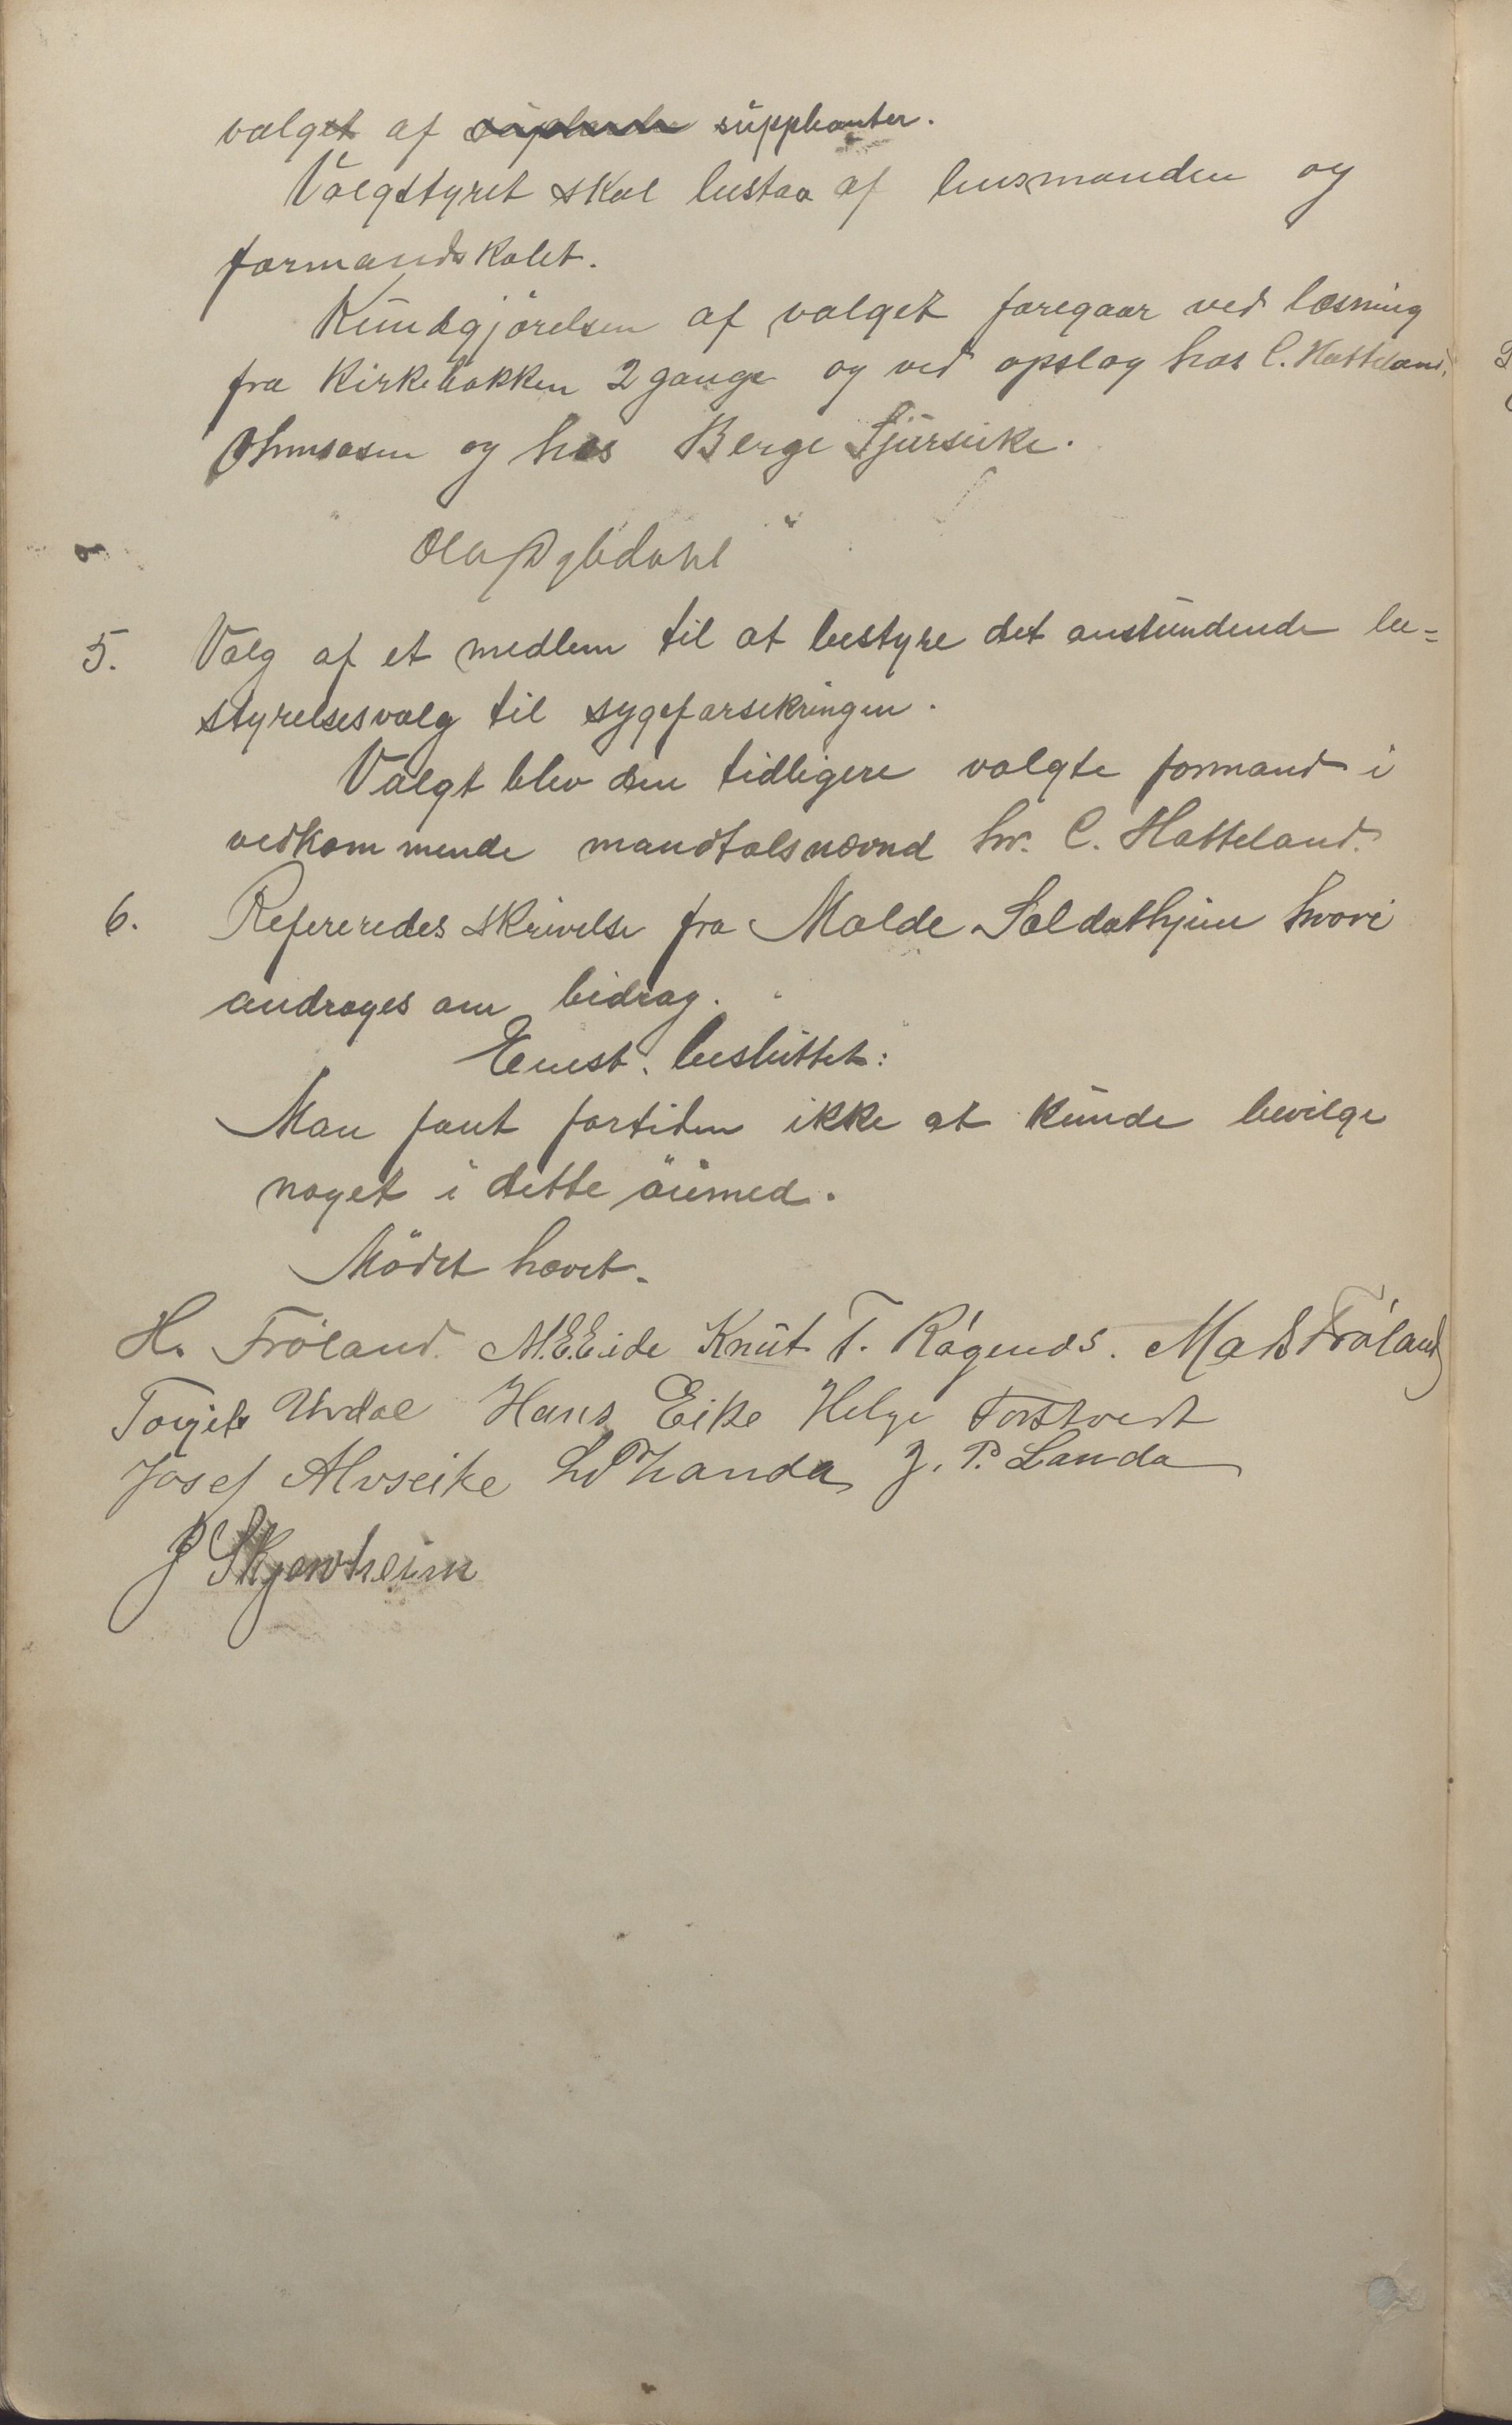 valget af suppleanter.
Valgstyret skal bestaa af lensmanden og
formandskabet.
Kundgjörelsen af valget foregaar ved læsning
fra Kirkebakken 2 gange og ved opslag hos C. Hatteland,
og hos Berge Sjurseike.
Ola Dybdahl
5. Valg af et medlem til at bestyre det anstundende be=
styrelsesvalg til sygeforsekringen.
Valgt blev den tidligere valgte formand i
vedkommende mandtalsnævnd hr. C. Hatteland.
6. Refereredes skrivelse fra Molde Soldathjem hvori
andrages om bidrag.
Enst. besluttet:
Man fant fortiden ikke at kunde bevilge
noget i dette öiemed.
Mödet hævet.
H. Fröland. M.E.Eide Knut T. Rágends. Mads Fröland
Torgils Urdal Hans Eike Helge Tostvedt
Josef Alvseike Landa J. P. Landa
P Skjenheim